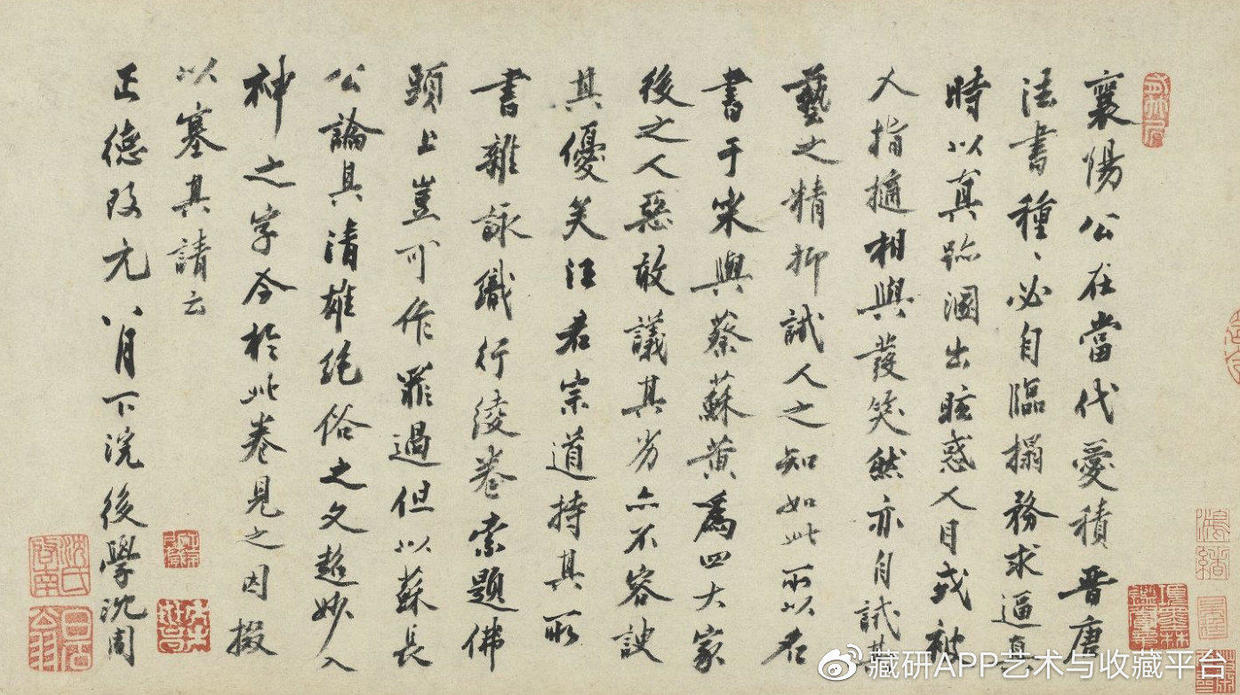 襄陽公在當代愛積晉唐
法書種〻必自臨搨務求逼真
時以真跡溷出眩惑人目或被
人指擿相與發笑然亦自試其
藝之精抑試人之知如此所以名
書于宋與蔡蘇黃為四大家
後之人惡敢議其劣亦不容諛
其優矣汪君宗道持其所
書雜詠織行綾卷索題佛
頭上豈可作罪過但以蘇長
公論其清雄絕俗之文超妙入
神之字今於此卷見之因掇
以塞其請云
正德改元八月下浣後學沈周
沈氏啟南
白石翁
藏研APP艺术与收藏平台